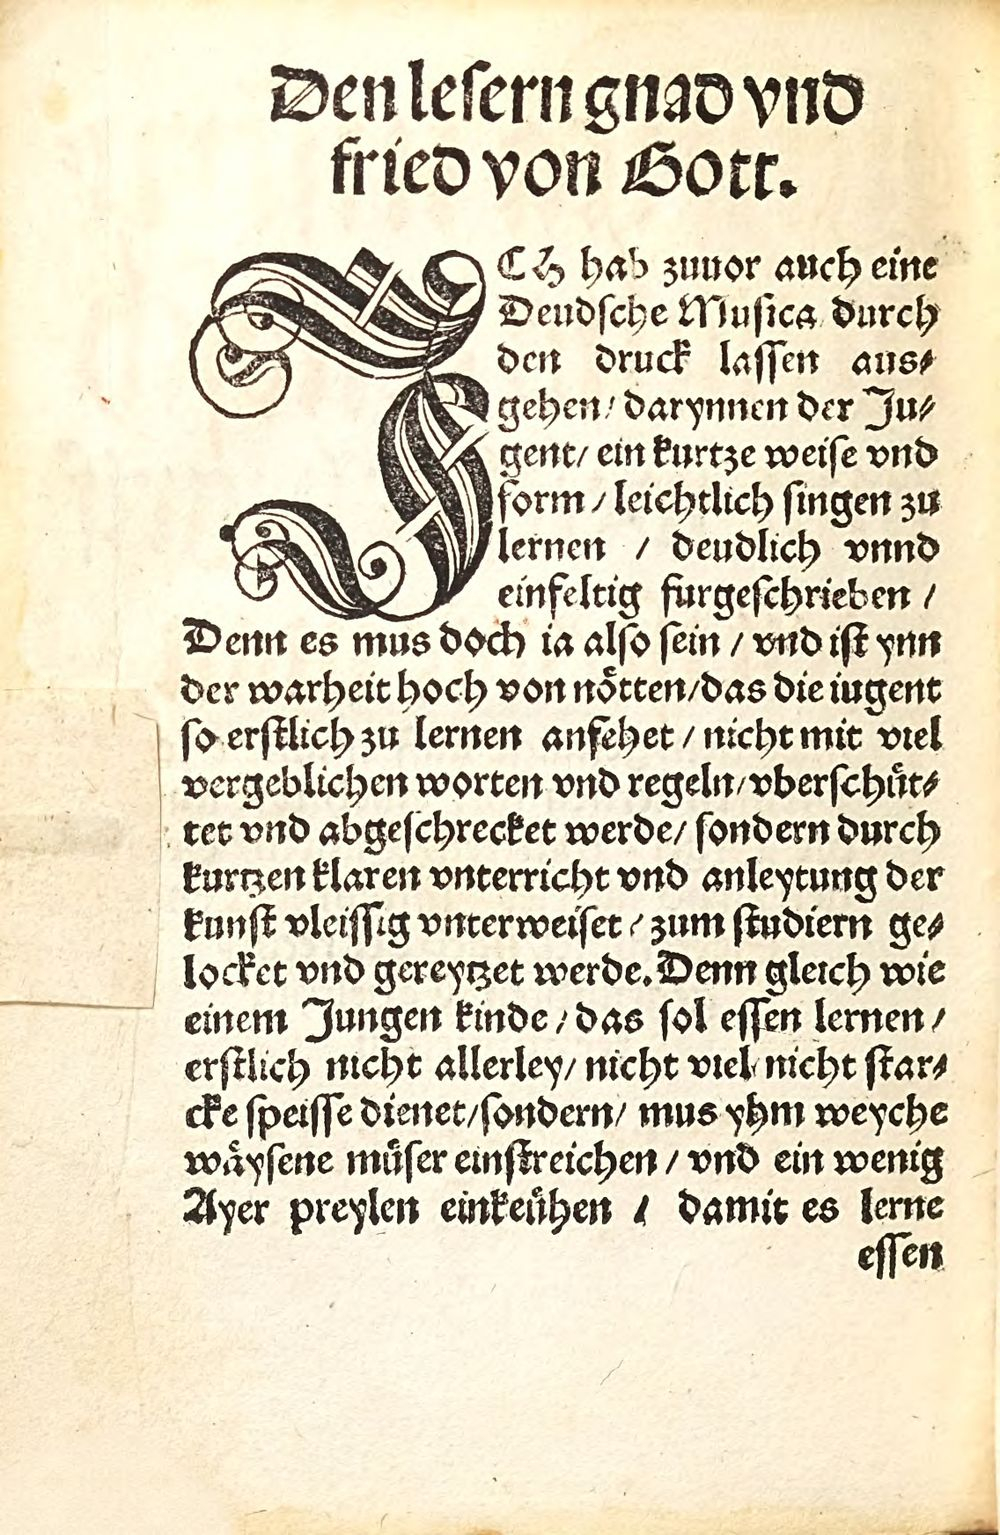 Den lesern gnad vnd
fried von Gott.
ICh hab zuuor auch eine
Deudsche Musica durch
den druck lassen aus⸗
gehen / darynnen der Ju⸗
gent / ein kurtze weise vnd
form / leichtlich singen zu
lernen / deudlich vnnd
einfeltig furgeschrieben /
Denn es mus doch ia also sein / vnd ist ynn
der warheit hoch von nötten / das die iugent
so erstlich zu lernen anfehet / nicht mit viel
vergeblichen worten vnd regeln / vberschüt⸗
tet vnd abgeschrecket werde / sondern durch
kurtzen klaren vnterricht vnd anleytung der
kunst vleissig vnterweiset / zum studiern ge⸗
locket vnd gereytzet werde. Denn gleich wie
einem Jungen kinde / das sol essen lernen /
erstlich nicht allerley / nicht viel nicht star⸗
cke speisse dienet / sondern / mus yhm weyche
wäysene müser einstreichen / vnd ein wenig
Ayer preylen einkeühen / damit es lerne
essen